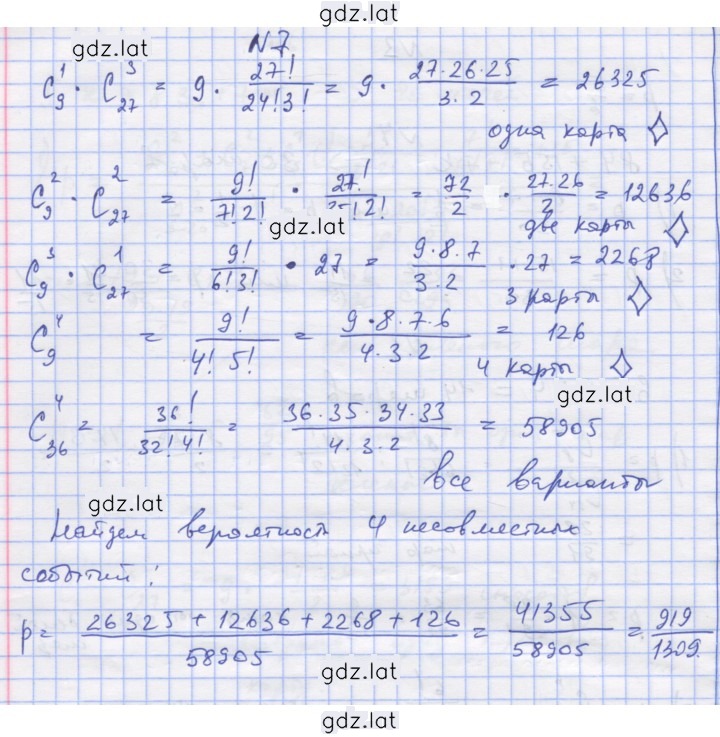 gdz.lat
gdz.lat
N7
C₉¹ · C₂₇³ = 9 · 27!/24!3! = 9 · 27·26·25/3·2 = 26325
одна карта ◇
C₉² · C₂₇² = 9!/7!2! · 27!/2!= 72/2 · 27·26/2 = 12636
gdz.lat
две карты ◇
C₉³ · C₂₇¹ = 9!/6!3! · 27 = 9·8·7/3·2 · 27 = 2268
3 карты ◇
C₉⁴ = 9!/4!5! = 9·8·7·6/4·3·2 = 126
4 карты ◇
gdz.lat
C₃₆⁴ = 36!/32!4! = 36·35·34·33/4·3·2 = 58905
все варианты
gdz.lat
Найдем вероятность 4 несовместных
событий:
p = 26325 + 12636 + 2268 + 126/58905 = 41355/58905 = 919/1309.
gdz.lat
gdz.lat